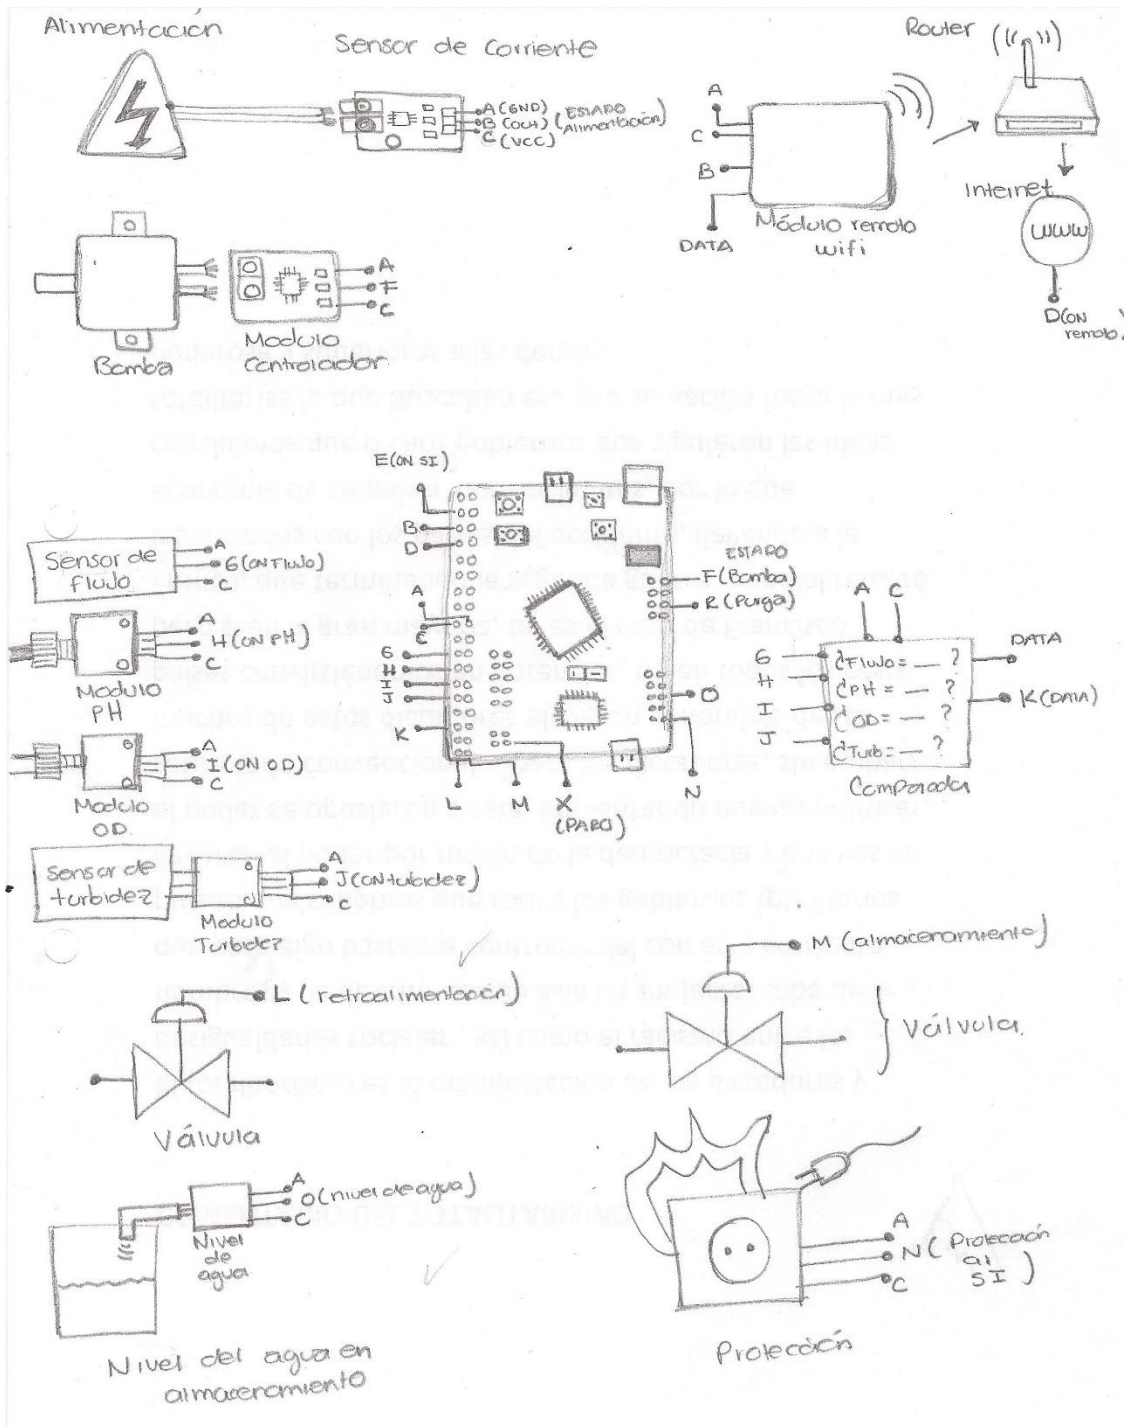 Alimentación
Sensor de Corriente
A (GND)
B (OUT) (ESTADO
Alimentación)
C (VCC)
Router
A
C
B
DATA
Módulo remoto
wifi
Internet
WWW
D (ON
remoto)
Bomba
Modulo
Controlador
A
F
C
E (ON SI)
B
D
A
C
G
H
I
J
K
L
M
X
(PARO)
N
O
ESTADO
F (Bomba)
R (Purga)
Sensor de
flujo
A
G (ON Flujo)
C
A
H (ON PH)
C
Modulo
PH
A
I (ON OD)
C
Modulo
OD.
Sensor de
turbidez
A
J (ON turbidez)
C
Modulo
Turbidez
A
C
G
H
I
J
¿Flujo = __ ?
¿PH = __ ?
¿OD = __ ?
¿Turb = __ ?
DATA
K (DATA)
Comparador
L (retroalimentación)
Válvula
M (almacenamiento)
Válvula.
A
O (nivel de agua)
C
Nivel
de
agua
Nivel del agua en
almacenamiento
A
N (Protección
al
SI)
C
Protección